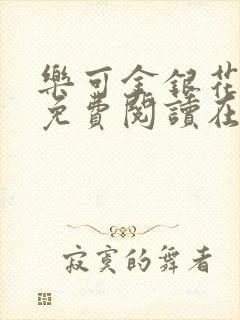 樂可金銀花
免費閱讀在
寂寞的舞者